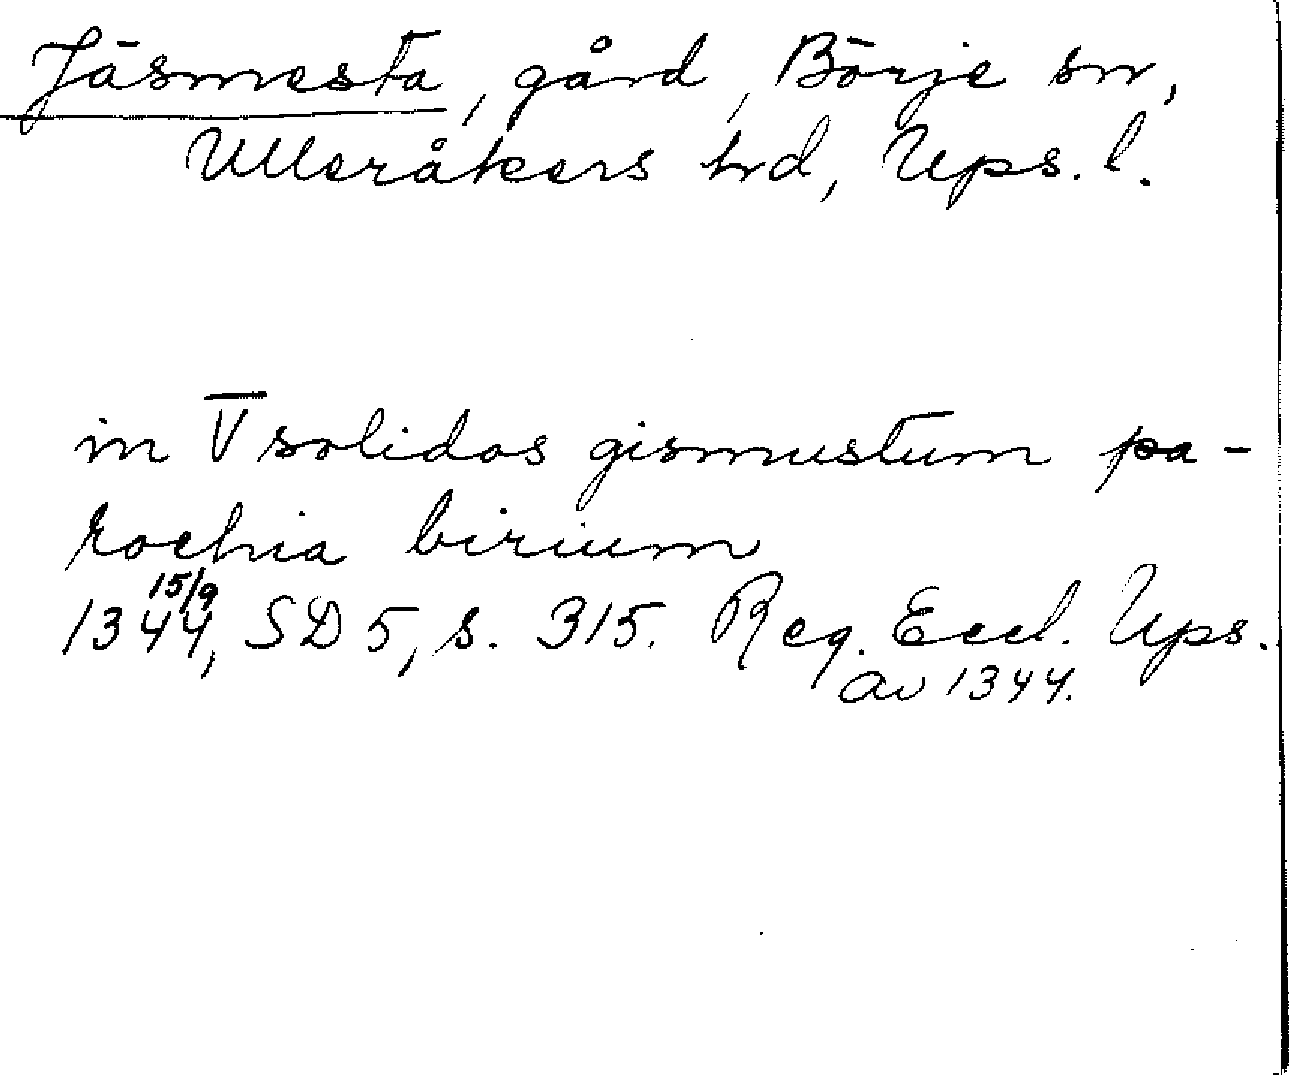 Jäsmesta, gård, Börje sn,
Ulleråkers hd, Ups. l.
in V solidos gismustum pa-
rochia birium
1344 15/9, SD 5, s. 315. Reg. Eccl. Ups.
av 1344.